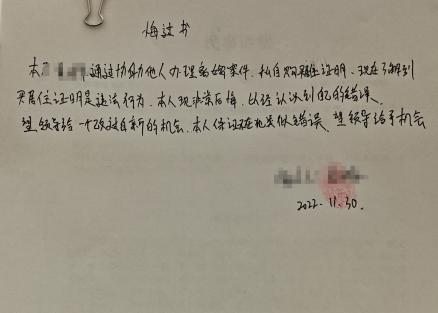 悔过书
本人通过协助他人办理离婚案件,私自购买居住证明,现在了解到
买居住证明是违法行为,本人现非常后悔,以经认识到自己的错误,
望领导给一个改过自新的机会,本人保证不在犯类似错误,望领导给予机会
2022.11.30.